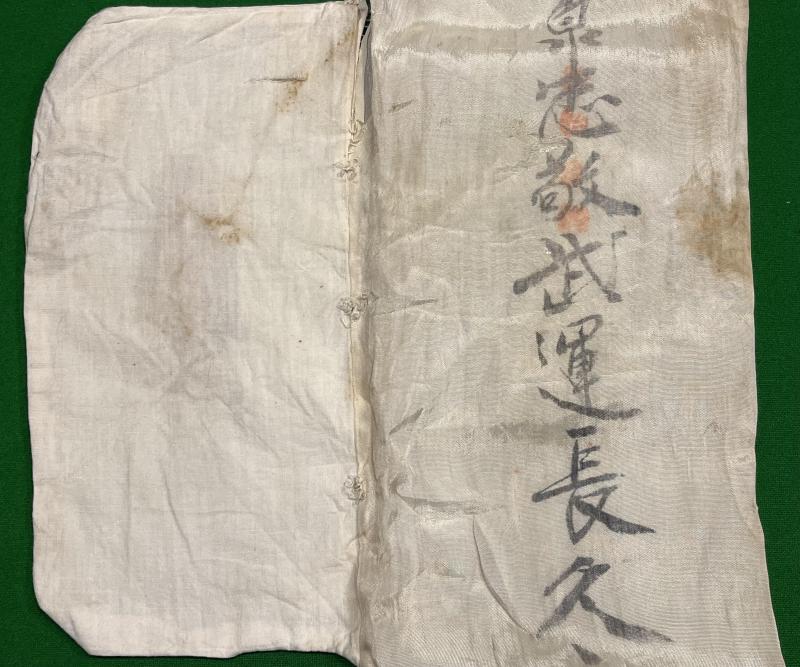 泉忠敬武運長久